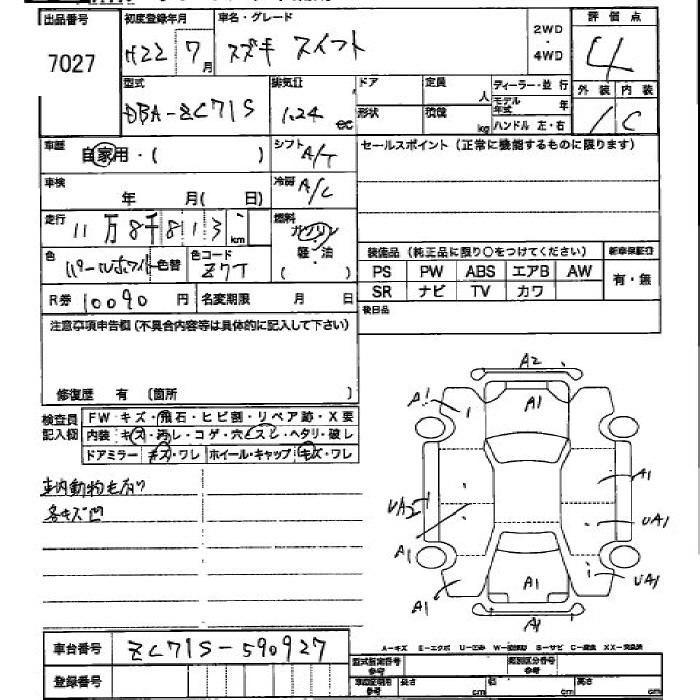 出品番号
7027
初度登録年月
H22 7月
車名・グレード
スズキ スイフト
2WD
・
4WD
評価点
4
型式
DBA-ZC71S
排気量
1.24 cc
ドア
形状
定員
人
積載
kg
ディーラー・並行
モデル年式 年
ハンドル 左・右
外装 内装
C
車歴
自家用・( )
シフト
A/T
セールスポイント (正常に機能するものに限ります)
車検
年 月( 日)
冷房
A/C
走行
11万8千813 km
燃料
ガソリン
軽・油
( )
色
パールホワイト
色替
色コード
Z7T
装備品 (純正品に限り○をつけてください)
新車保証書
PS PW ABS エアB AW
有・無
SR ナビ TV カワ
R券 10090円
名変期限 月 日
後日品
注意事項申告欄 (不具合内容等は具体的に記入して下さい)
修復歴 有 〔箇所 〕
検査員
記入欄
FW キズ・飛石・ヒビ割・リペア跡・X要
内装 キズ・汚レ・コゲ・穴・スレ・ヘタリ・破レ
ドアミラー キズ・ワレ ホイール・キャップ キズ・ワレ
車内動物毛有り
各キズ凹
A2
A1
A1
A1
UA2
UA1
A1
UA1
A1
A1
A1
A-キズ E-エクボ U-凹み W-波 S-サビ C-腐食 XX-交換済
車台番号
ZC71S-590927
登録番号
型式指定番号
参考
類別区分番号
参考
車両証明用
参考
長さ cm
幅 cm
高さ cm